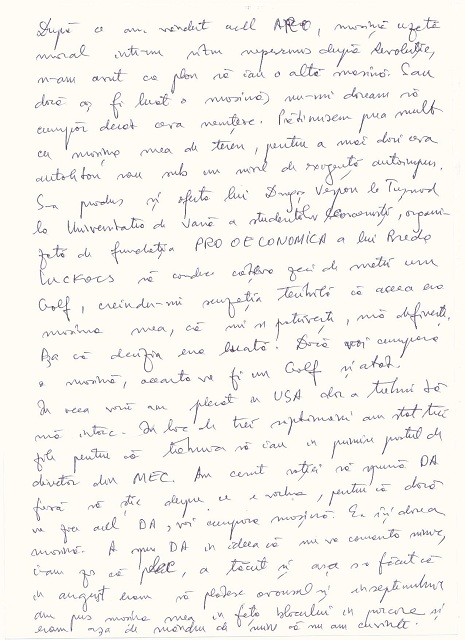 După ce am vândut acel ARO, mașină uzată
moral într-un ritm supersonic după Revoluție,
n-am avut ca plan să iau o altă mașină. Sau
dacă aș fi luat o mașină, nu-mi doream să
cumpăr decât ceva nemțesc. Pătimisem prea mult
cu mașina mea de teren, pentru a mai dori ceva
autohton sau sub un nivel de exigență autoimpus.
S-a produs și oferta lui Dragoș Vespan la Tușnad
la Universitatea de Vară a studenților Economiști, organi-
zată de fundația PRO OECONOMICA a lui
LUCKACS să conduc câțiva zeci de metri un
Golf, creindu-mi senzația teribilă că aceea era
mașina mea, că mi se potrivește, mă definește.
Așa că decizia era luată. Dacă voi cumpăra
o mașină, aceasta va fi un Golf și atât.
În acea vară am plecat în USA dar a trebuit să
mă întorc. În loc de trei săptămâni am stat trei
zile pentru că trebuia să iau în primire postul de
director din MEC. Am cerut soției să spună DA
fără să știe despre ce e vorba, pentru că dacă
va fi acel DA, voi cumpăra mașina. Ea își dorea
mașină. A spus DA în ideea că nu va comenta nimic,
i-am zis că plec, a tăcut și așa s-a făcut că
în august eram să plătesc avansul și în septembrie
am pus mașina mea în fața blocului în parcare și
eram așa de mândru de mine că nu am cuvinte.